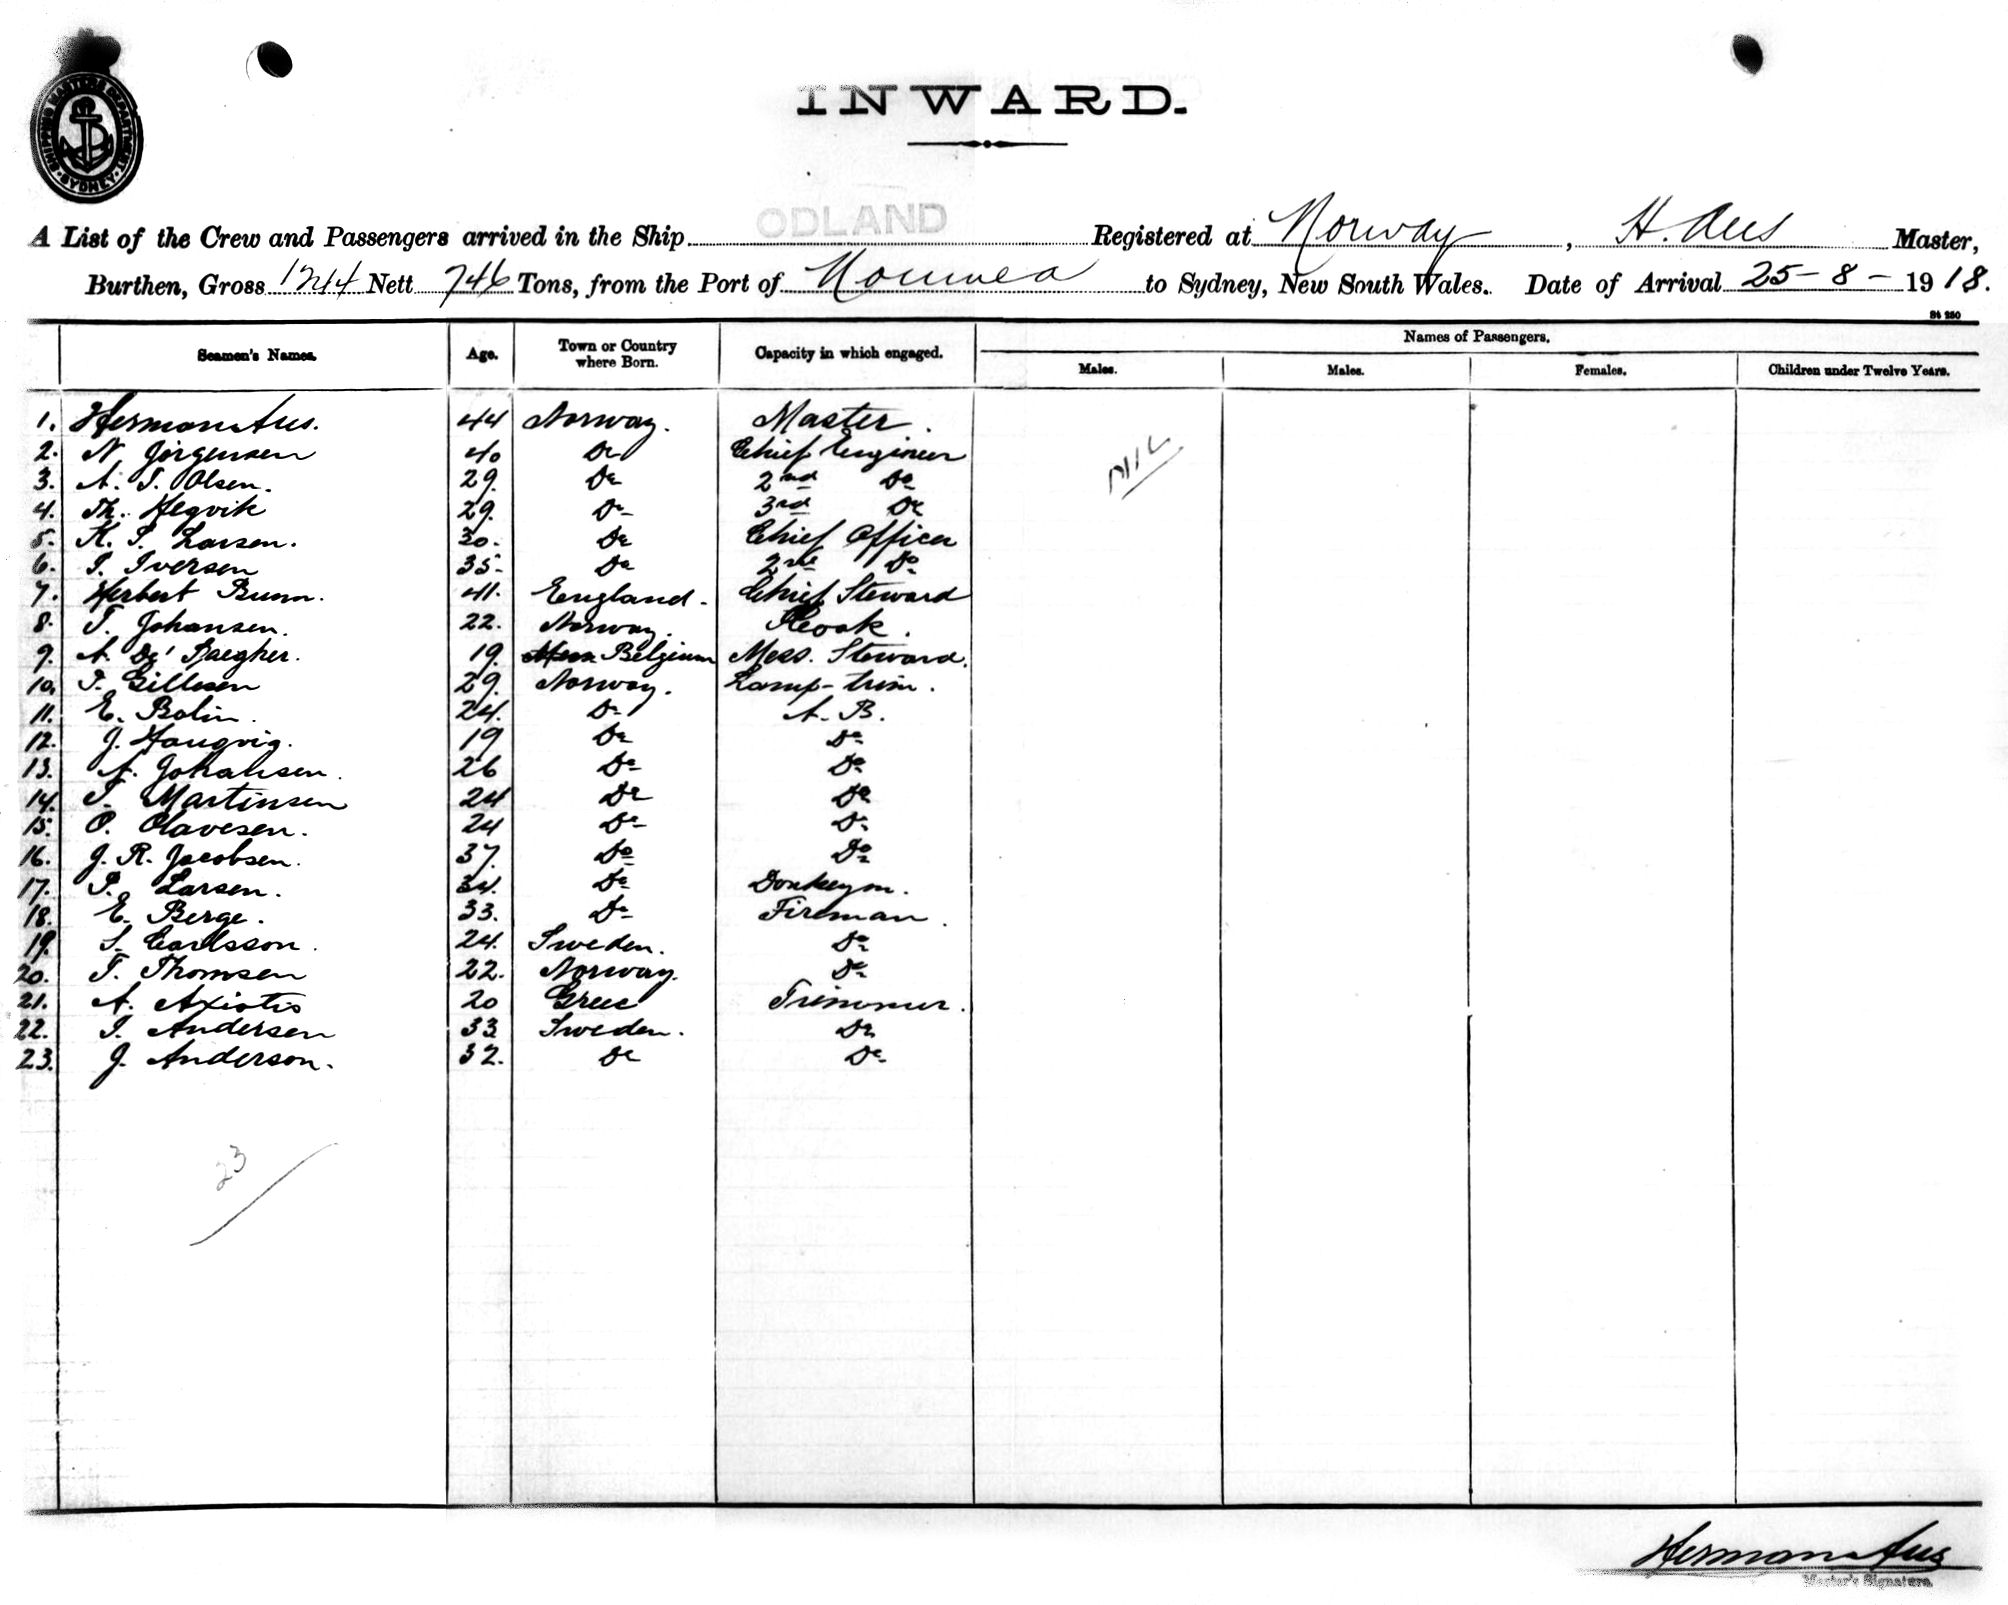 SHIPPING MASTERS DEPARTMENT SYDNEY
INWARD.
A List of the Crew and Passengers arrived in the Ship ODLAND Registered at Norway, H. Aus Master,
Burthen, Gross 1244 Nett 746 Tons, from the Port of Noumea to Sydney, New South Wales. Date of Arrival 25-8-1918.
St 280
Seamen's Names. Age. Town or Country where Born. Capacity in which engaged. Names of Passengers.
Males. Males. Females. Children under Twelve Years.
1. Herman Aus. 44 Norway. Master.
2. N Jörgensen 40 Do Chief Engineer
3. A. T. Olsen. 29. Do 2nd Do
4. Th. Hegvik 29. Do 3rd Do
5. K. P. Larsen. 30. Do Chief Officer
6. P. Iversen 35. Do 2nd Do
7. Herbert Bunn. 41. England. Chief Steward
8. T. Johansen. 22. Norway. Cook.
9. A. De' Baegher. 19. Belgium Mess. Steward.
10. P. Gillesen 29. Norway. Lamp-trim.
11. E. Bolin. 24. Do A. B.
12. J. Haugvig. 19 Do Do
13. A. Johansen. 26 Do Do
14. T. Martinsen 24 Do Do
15. O. Olavesen. 24 Do Do
16. J. R. Jacobsen. 37. Do Do
17. P. Larsen. 34. Do Donkeym.
18. E. Berge. 33. Do Fireman.
19. S. Carlsson. 24. Sweden. Do
20. T. Thomsen 22. Norway. Do
21. A. Axiotis 20 Greec Trimmer.
22. I. Andersen 33 Sweden. Do
23. J. Anderson. 32. Do Do
NIL
23
Herman Aus
Master's Signature.